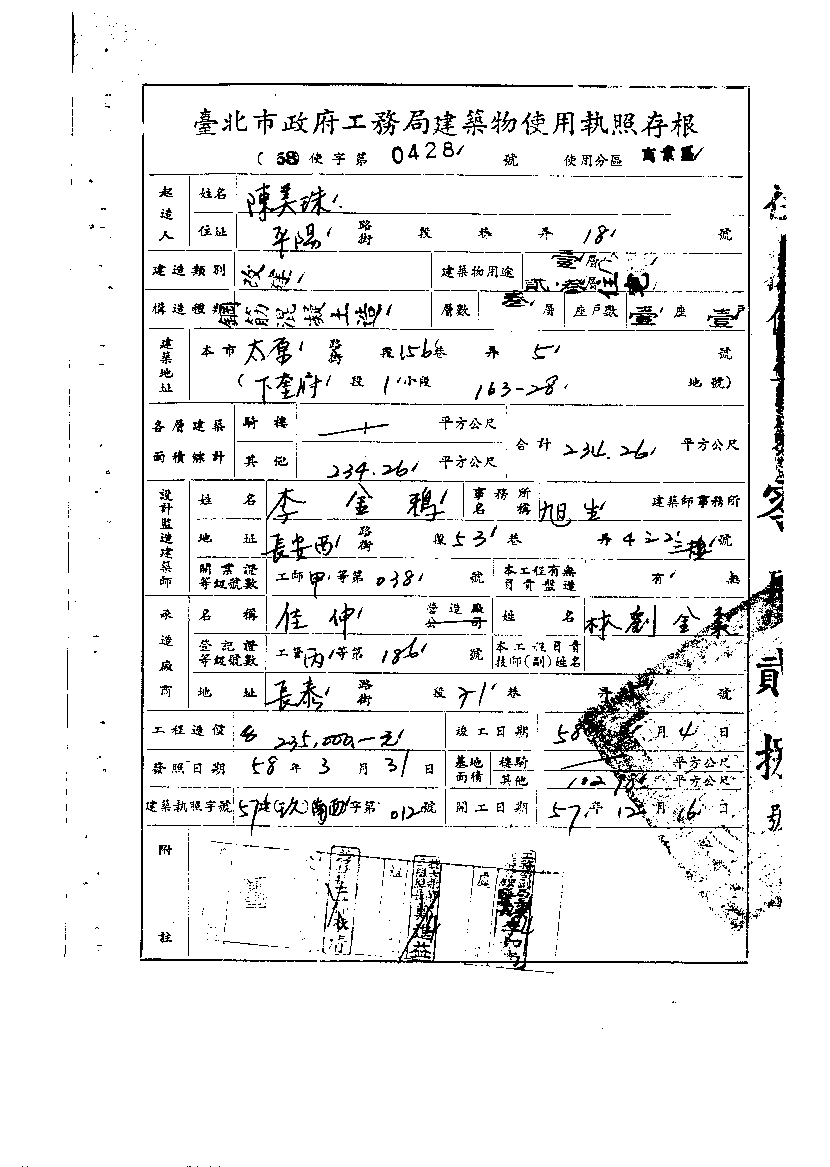 臺北市政府工務局建築物使用執照存根
(58使字第0428號 使用分區 商業區
起造人 姓名 陳美珠
住址 平陽 路街 段 巷 弄 18 號
建造類別 改建 建築物用途 壹層 貳.叁層住宅
構造種類 鋼筋混凝土造 層數 叁 層 座戶數 壹座 壹戶
建築地址 本市 太原 路街 段156巷 弄 5 號
(下奎府 段 1小段 163-28 地號)
各層建築面積総計 騎樓 平方公尺 合計 234.26 平方公尺
其他 234.26 平方公尺
設計監造建築師 姓名 李金 事務所名稱 旭生 建築師事務所
地址 長安西 路街 段53巷 弄422 號
開業證等級號數 工師甲等第038號 本工程有無負責監造 有 無
承造廠商 名稱 佳仲 營造廠公司 姓名 林劉金
登記證等級號數 工營丙等第186號 本工程負責技師(副)姓名
地址 長泰 路街 段71巷 弄 號
工程造價 235,000一元 竣工日期 58 月4日
發照日期 58年3月31日 基地面積 樓騎 平方公尺
其他 102.98 平方公尺
建築執照字號 字第012號 開工日期 57年12月16日
附註